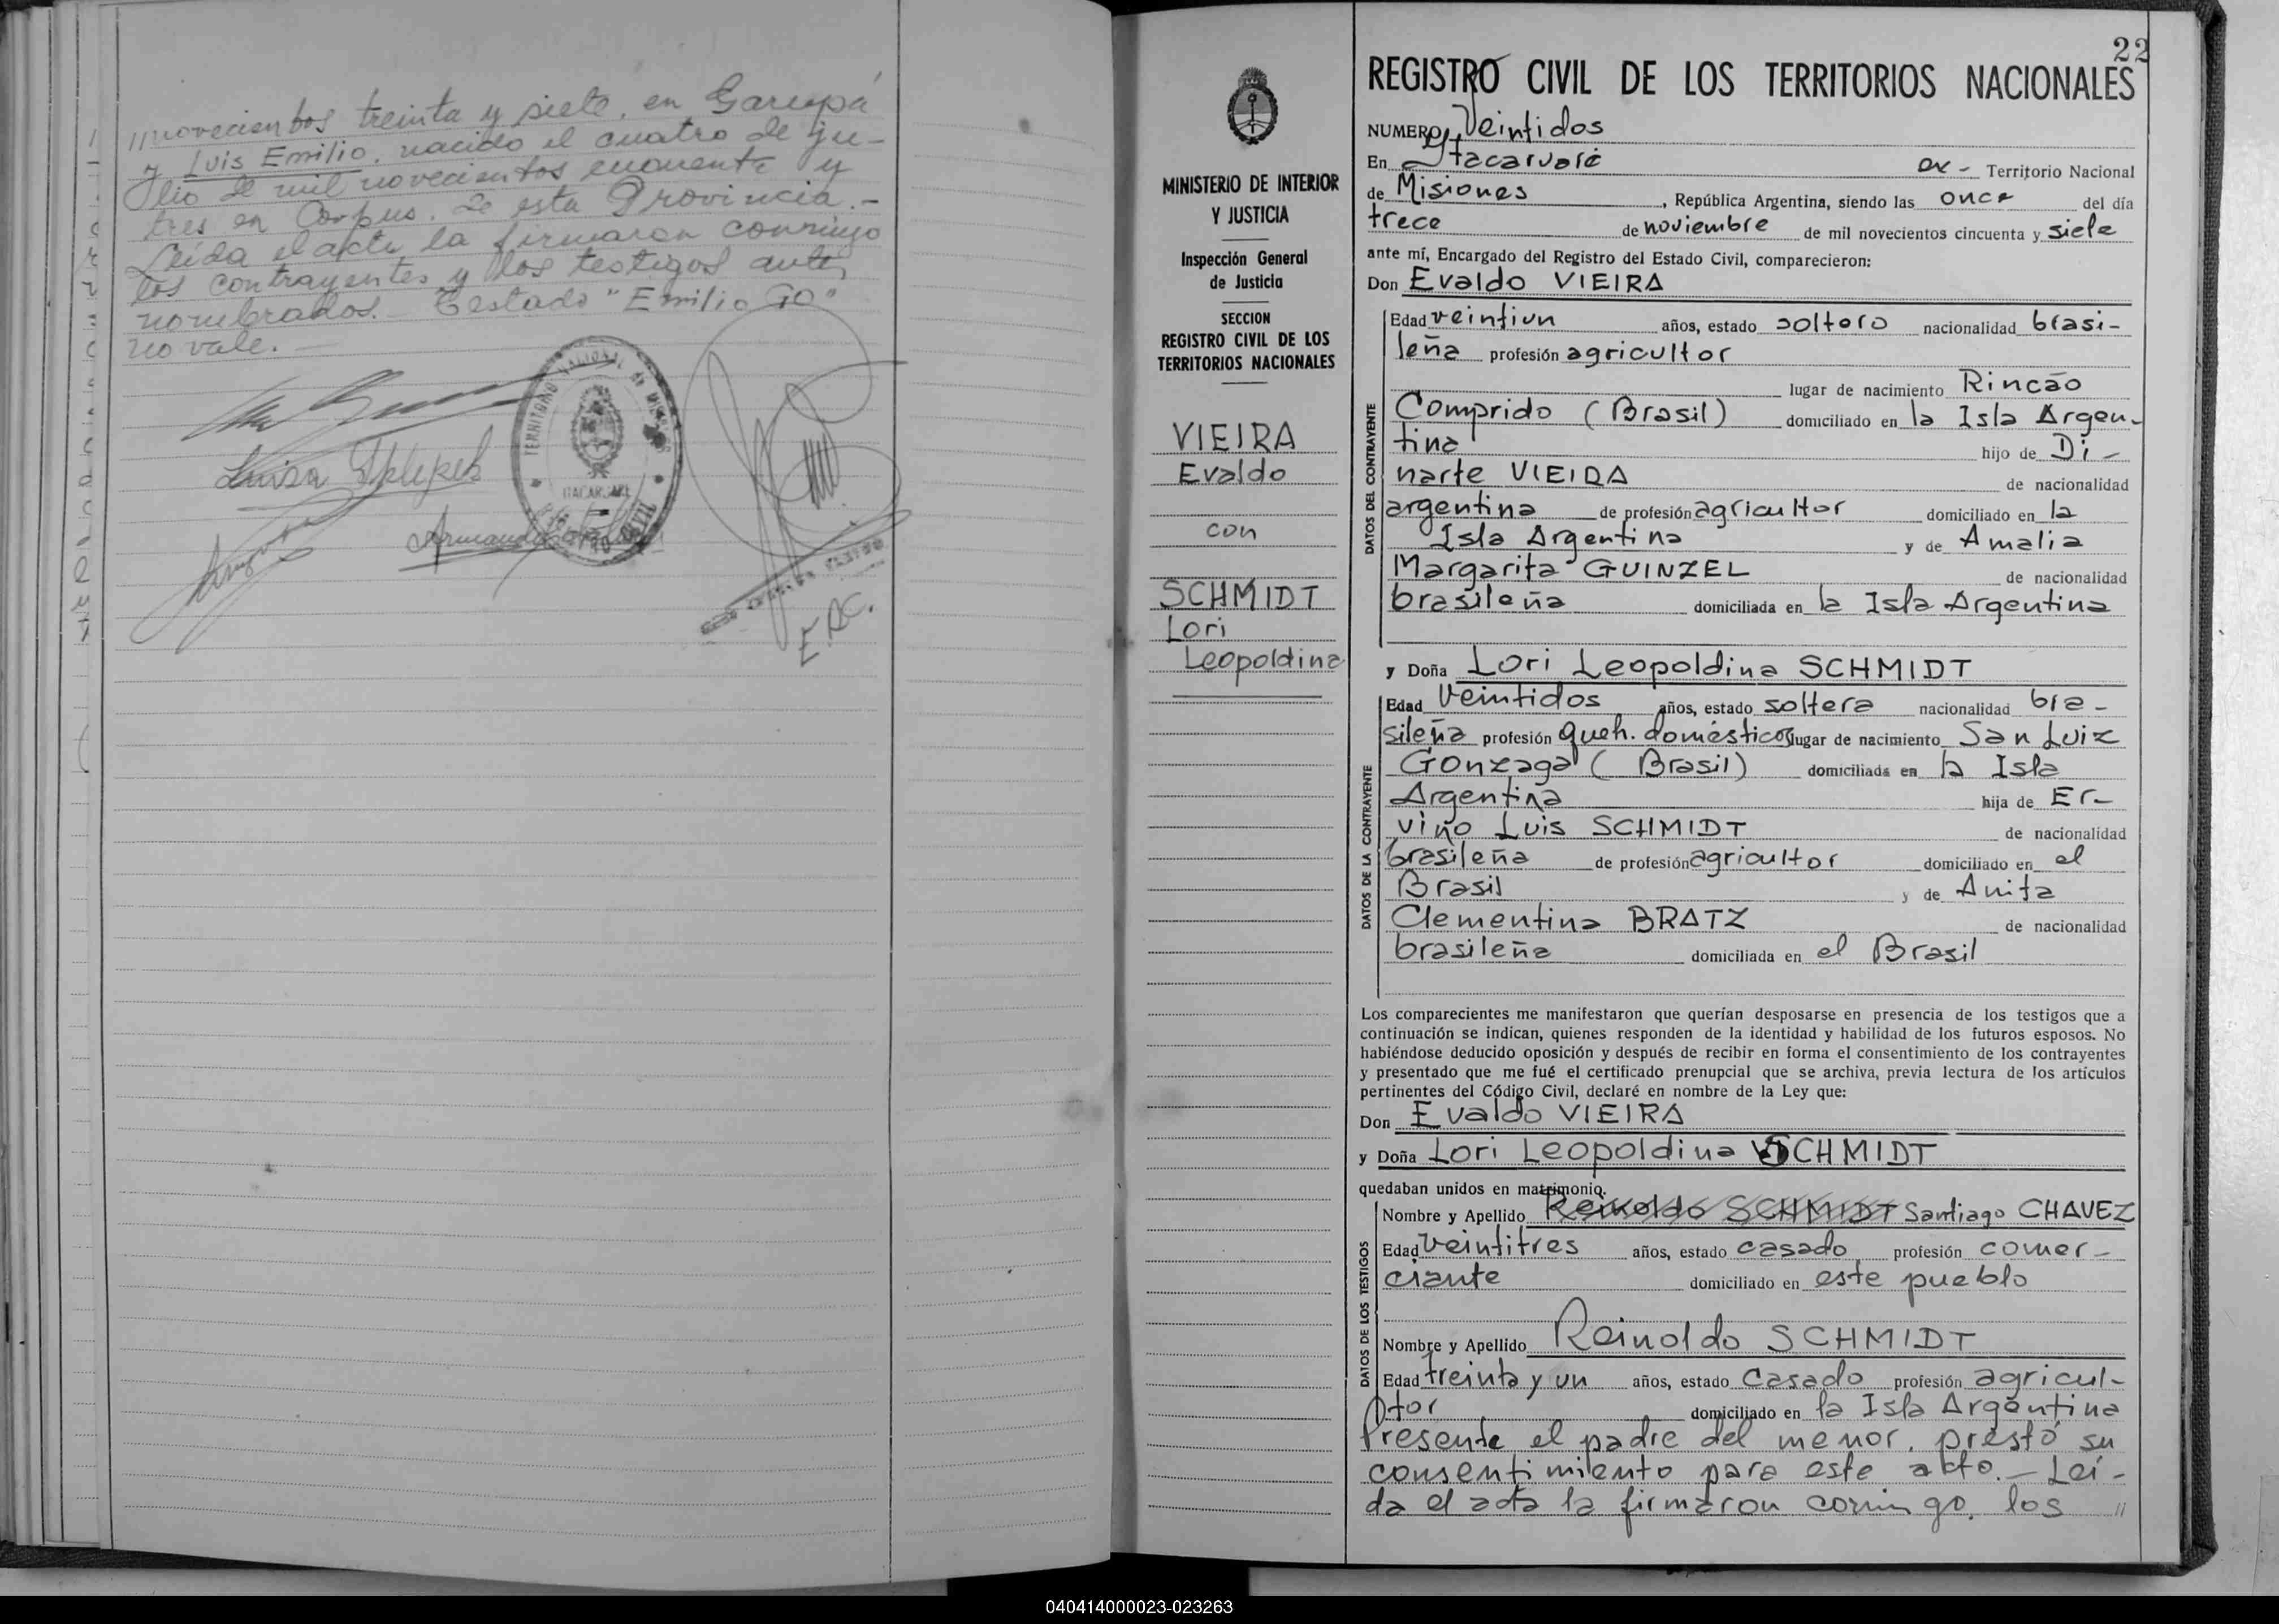 //novecientos treinta y siete, en Garupá
y Luis Emilio, nacido el cuatro de ju-
lio de mil novecientos cincuenta y
tres en Corpus, de esta Provincia.-
Leída el acta la firmaron conmigo
los contrayentes y los testigos antes
nombrados.- Testado "Emilio GO"
no vale.-
TERRITORIO NACIONAL DE MISIONES
ITACARUARE
REGISTRO CIVIL
Luisa
Armando
E.R.C.
MINISTERIO DE INTERIOR
Y JUSTICIA
Inspección General
de Justicia
SECCION
REGISTRO CIVIL DE LOS
TERRITORIOS NACIONALES
VIEIRA
Evaldo
con
SCHMIDT
Lori
Leopoldina
22
REGISTRO CIVIL DE LOS TERRITORIOS NACIONALES
NUMERO Veintidos
En Itacaruaré ex- Territorio Nacional
de Misiones, República Argentina, siendo las once del día
trece de noviembre de mil novecientos cincuenta y siete
ante mí, Encargado del Registro del Estado Civil, comparecieron:
Don Evaldo VIEIRA
DATOS DEL CONTRAYENTE
Edad veintiun años, estado soltero nacionalidad brasi-
leña profesión agricultor
lugar de nacimiento Rincão
Comprido (Brasil) domiciliado en la Isla Argen-
tina hijo de Di-
narte VIEIRA de nacionalidad
argentina de profesión agricultor domiciliado en la
Isla Argentina y de Amalia
Margarita GUINZEL de nacionalidad
brasileña domiciliada en la Isla Argentina
y Doña Lori Leopoldina SCHMIDT
DATOS DE LA CONTRAYENTE
Edad Veintidos años, estado soltera nacionalidad bra-
sileña profesión queh. domésticos lugar de nacimiento San Luiz
Gonzaga (Brasil) domiciliada en la Isla
Argentina hija de Er-
vino Luis SCHMIDT de nacionalidad
brasileña de profesión agricultor domiciliado en el
Brasil y de Anita
Clementina BRATZ de nacionalidad
brasileña domiciliada en el Brasil
Los comparecientes me manifestaron que querían desposarse en presencia de los testigos que a
continuación se indican, quienes responden de la identidad y habilidad de los futuros esposos. No
habiéndose deducido oposición y después de recibir en forma el consentimiento de los contrayentes
y presentado que me fué el certificado prenupcial que se archiva, previa lectura de los artículos
pertinentes del Código Civil, declaré en nombre de la Ley que:
Don Evaldo VIEIRA
y Doña Lori Leopoldina SCHMIDT
quedaban unidos en matrimonio.
DATOS DE LOS TESTIGOS
Nombre y Apellido Reinoldo SCHMIDT Santiago CHAVEZ
Edad Veintitres años, estado casado profesión comer-
ciante domiciliado en este pueblo
Nombre y Apellido Reinoldo SCHMIDT
Edad treinta y un años, estado casado profesión agricul-
tor domiciliado en la Isla Argentina
Presente el padre del menor, prestó su
consentimiento para este acto.- Leí-
da el acta la firmaron conmigo, los //
040414000023-023263